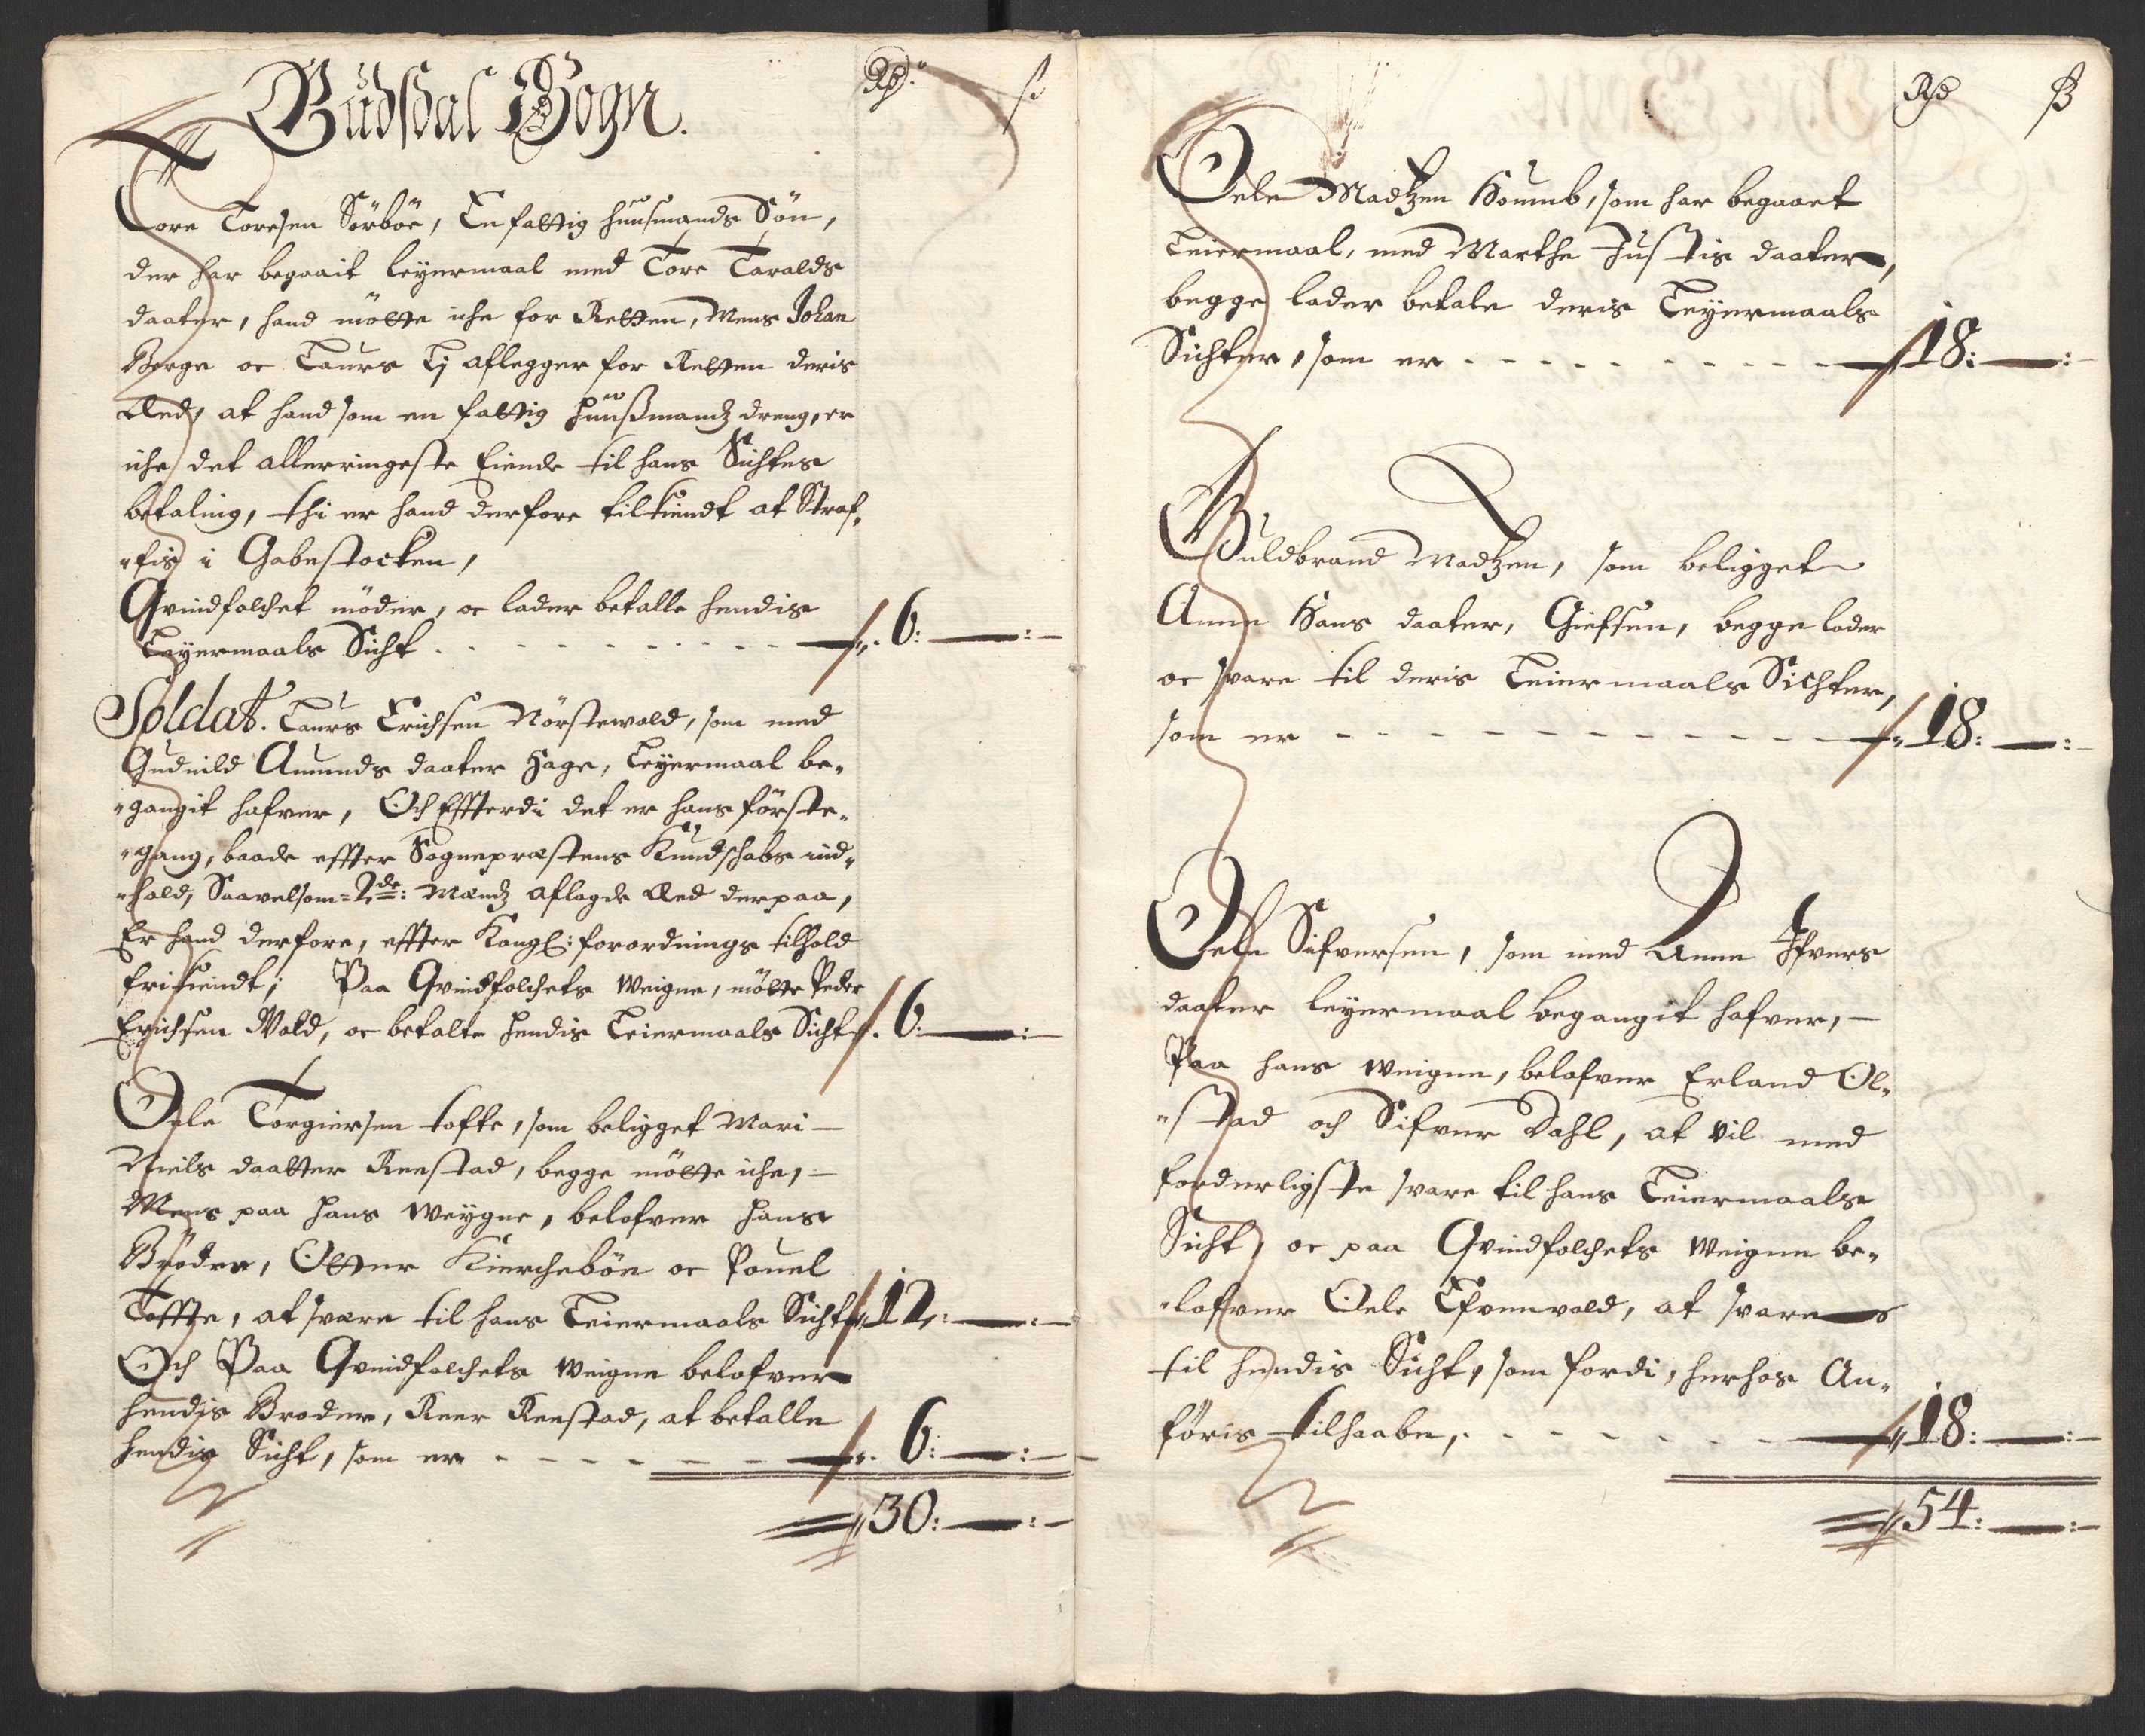 Gudsdal Sogn.
Rd. ß
Tore Toresen Sørbøe, En fattig huusmands Søn,
der har begaait leyermaal med Tore Taralds
daater, hand møtte iche for Retten, Mens Johan
Berge oc Laurs Lj aflegger for Retten deris
Æed, at hand som en fattig huußmandz dreng, er
iche det allerringeste Eiende til hans Sichtes
betaling, thi er hand derfore tilkiendt at Straf„
„fis i Gabestocken,
Qvindfolchet møder, oc lader betalle hendis
Leyermaals Sicht - - - - - - 6: — : —
Soldat. Laurs Erichsen Nørstewold, som med
Gudnild Amunds daater Hage, Leyermaal be„
„gangit hafver, Och Effterdi det er hans første„
„gang, baade effter Sognepræstens Kundschabs ind„
„hold, Saavelsom = 2de: Mændz aflagde Æed derpaa,
Er hand derfore, effter Kongl: forordnings tilhold
frikiendt; Paa Qvindfolchets Weigne, møtte Peder
Erichsen Vold, oc betalte hendis Leiermaals Sicht 6: — : —
Oele Torgiersen tofte, som beligget Mari
Niels daatter Reestad, begge møtte iche,
Mens paa hans Weygne, belofver hans
Brødre, Otter Kierchebøe oc Pouel
Toffte, at svare til hans Leiermaals Sicht 12: — : —
Och Paa Qvindfolchets Weigne belofver
hendis Broder, Reer Reestad, at betalle
hendis Sicht, som er - - - - - - 6: — : —
30: — : —
Rd ß
Oele Madtzen Houmb, som har begaaet
Leiermaal, med Marthe Justis daater,
begge lader betale deris Leyermaals
Sichter, som er - - - - - - 18: — : —
Guldbrand Madtzen, som beligget
Anne Hans daater, Giefsen, begge lader
oc svare til deris Leiermaals Sichter,
som er - - - - - - 18: — : —
Oele Sifversen, som med Anne Ifvers
daater leyermaal begangit hafver,
Paa hans weigne, belofver Erland Ol„
„stad och Sifver Dahl, at vil med
forderligste svare til hans Leiermaals
Sicht, oc paa Qvindfolchets Weigne be„
„lofver Oele Efvenvold, at svare
til hendis Sicht, som fordi, herhos An„
føris tilhaabe, - - - - - - 18: — : —
54: — : —